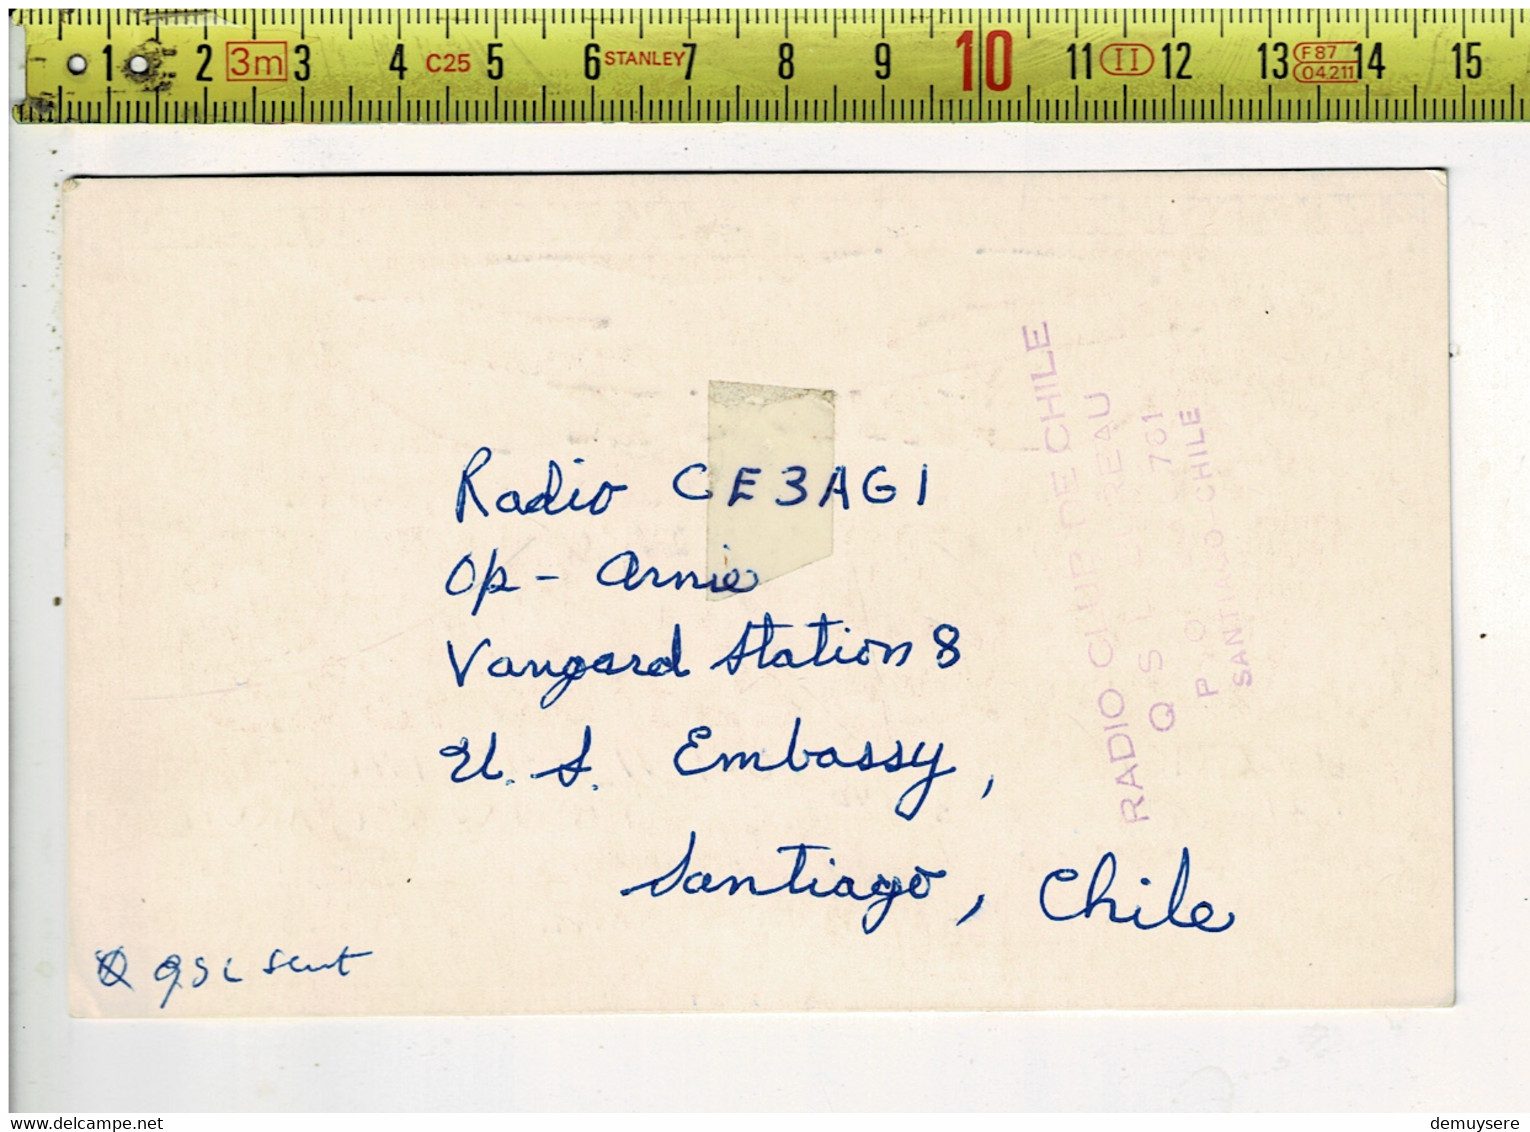 1 2 3m 3 4 C25 5 6 STANLEY 7 8 9 10 11 II 12 13 F 87 04.211 14 15
Radio CE3AG1
Op - Arnie
Vangard Station 8
U. S. Embassy,
Santiago, Chile
QSL sent
RADIO CLUB DE CHILE
QSL BUREAU
P O 761
SANTIAGO CHILE
delcampe.net
demuysere